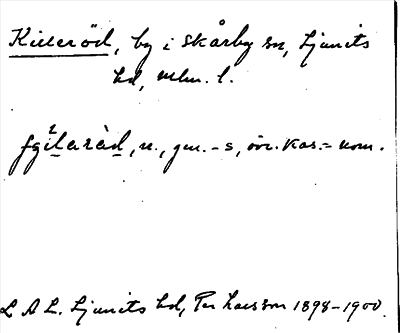 Killeröd, by i Skårby sn, Ljunits
hd, Mlm. l.
n., gen. -s, övr. kas. = nom.
L A L. Ljunits hd, Per Larsson 1898-1900.